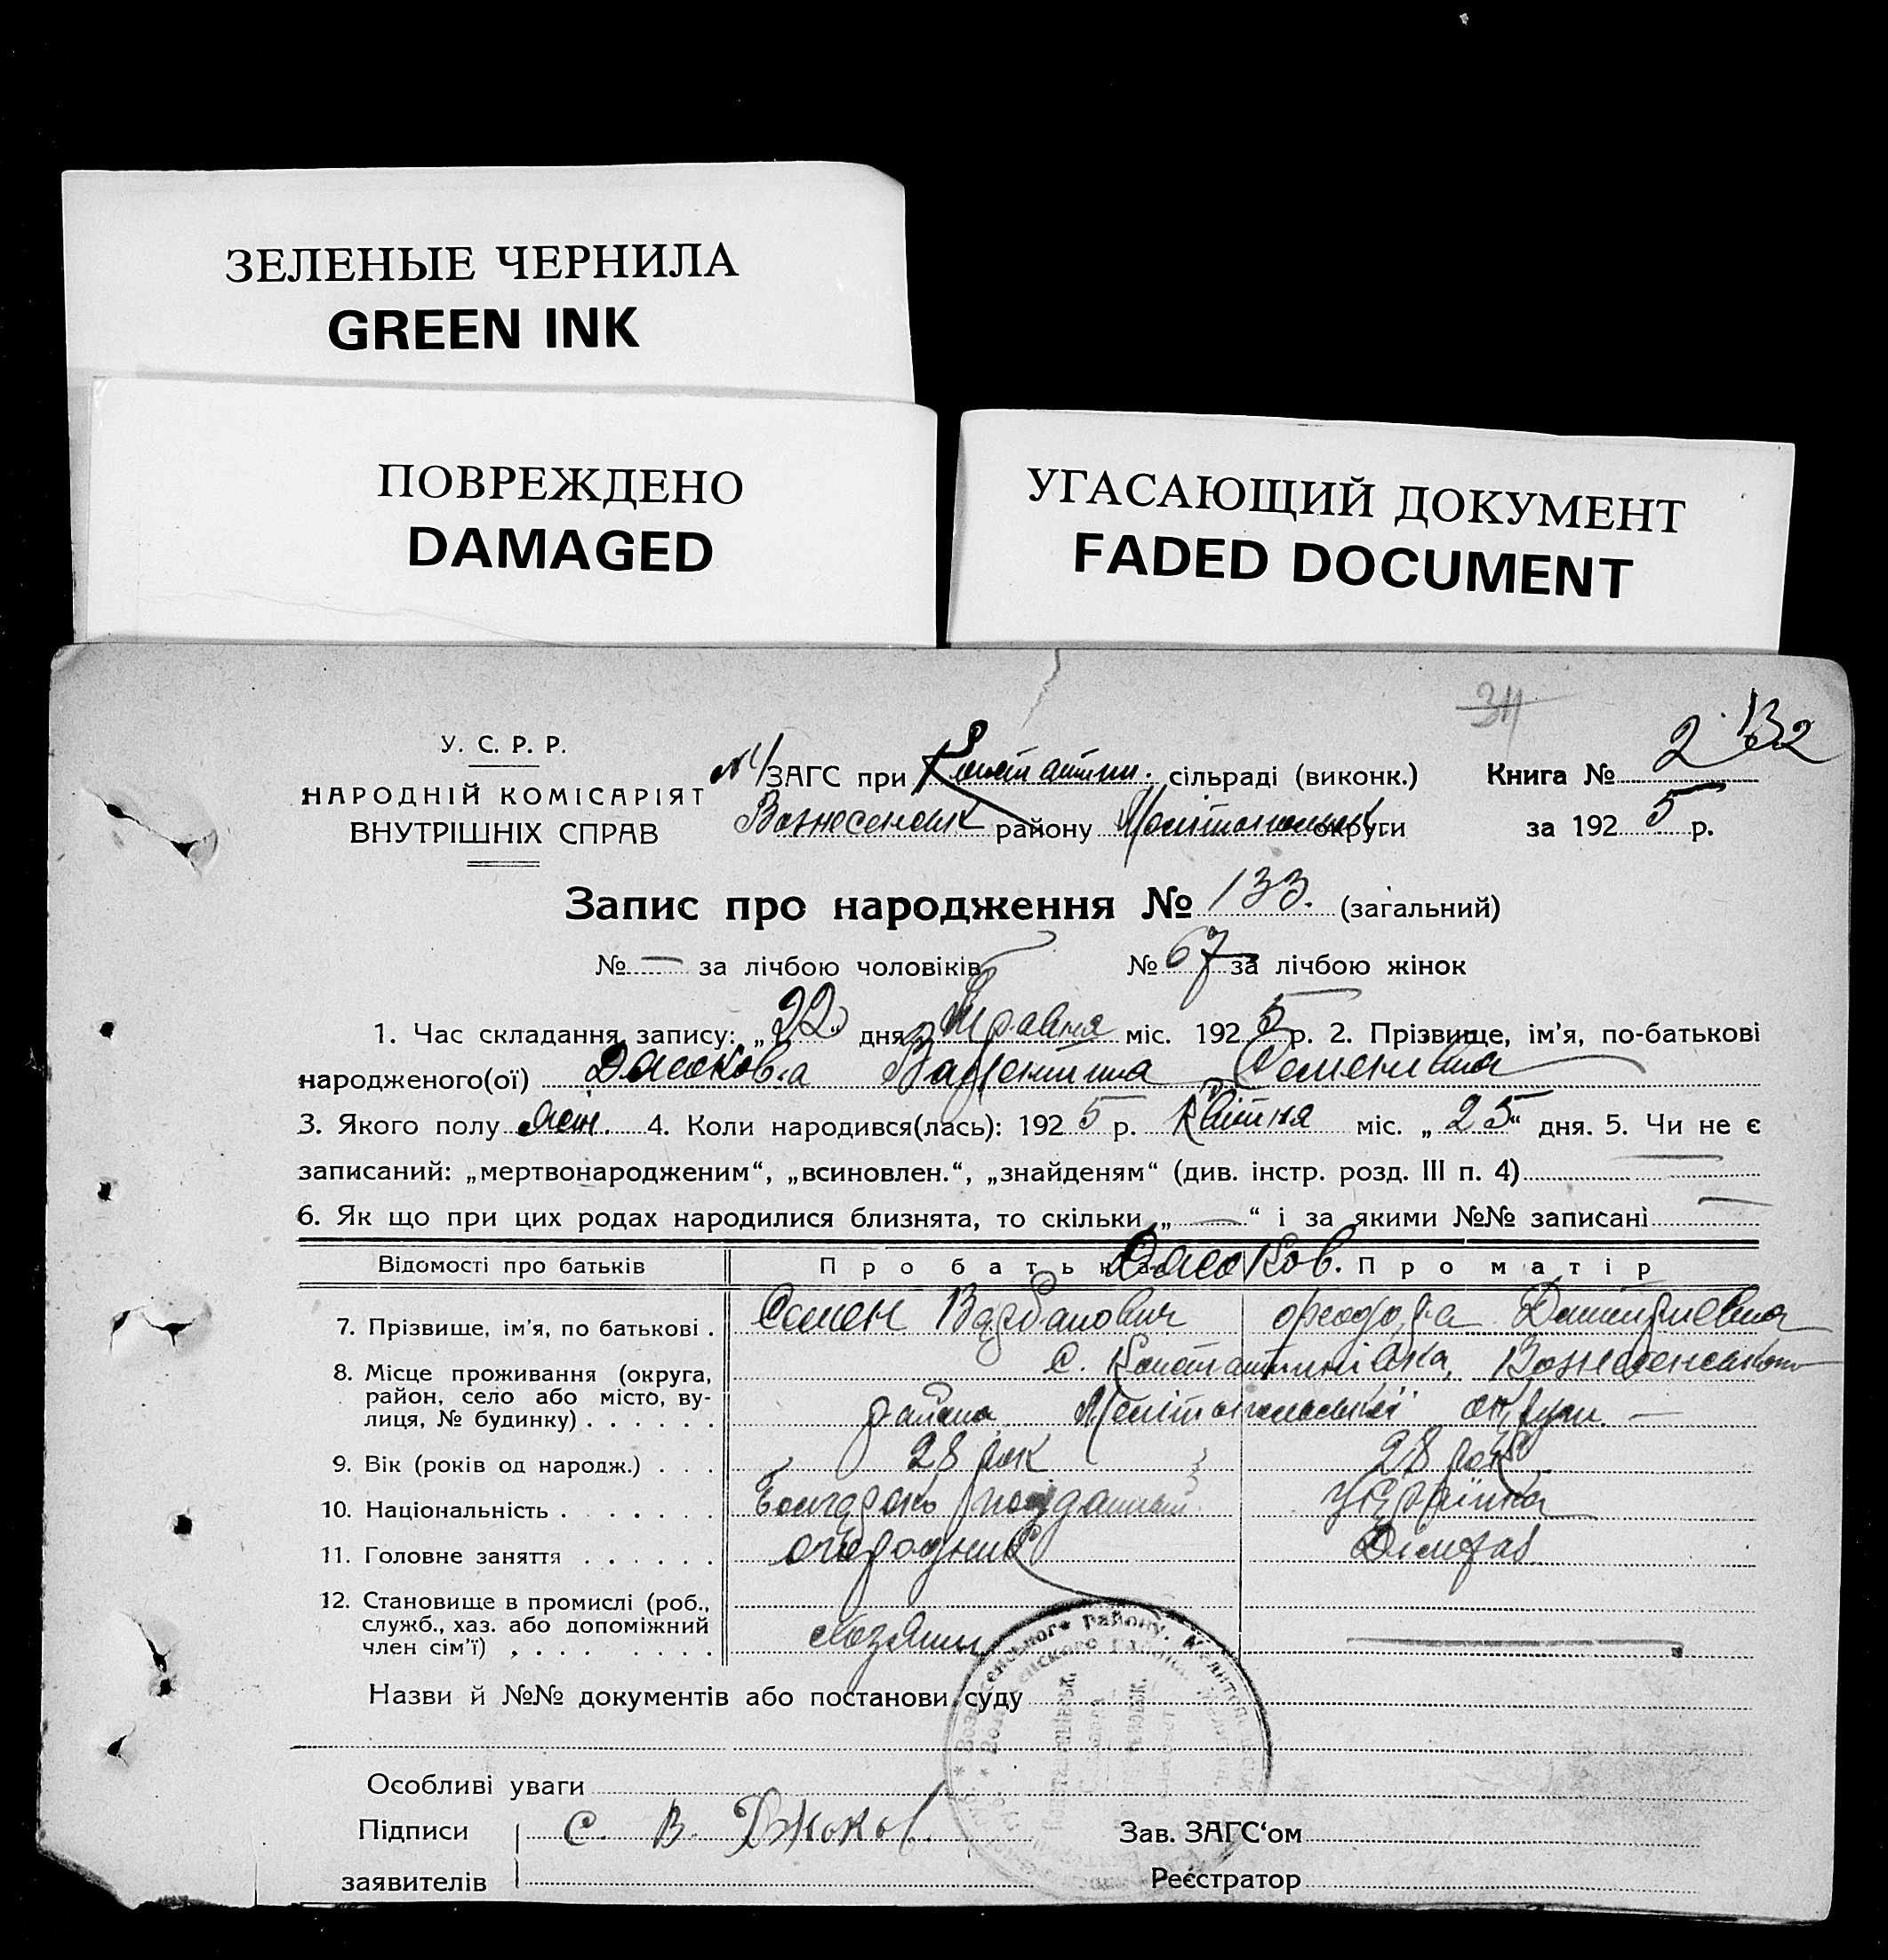 ЗЕЛЕНЫЕ ЧЕРНИЛА
GREEN INK
ПОВРЕЖДЕНО
DAMAGED
УГАСАЮЩИЙ ДОКУМЕНТ
FADED DOCUMENT
34
2 132
У. С. Р. Р.
НАРОДНІЙ КОМІСАРІЯТ
ВНУТРІШНІХ СПРАВ
ЗАГС при Констаншин. сільраді (виконк.) Книга №
Вознесенськ району Мелітопольськ округи за 192 5 р.
Запис про народження № 133. (загальний)
№ — за лічбою чоловіків № 67 за лічбою жінок
1. Час складання запису: „22" дня Травня міс. 192 5 р. 2. Прізвище, ім'я, по-батькові
народженого(ої) Валентина Семенівна
3. Якого полу жін. 4. Коли народився(лась): 192 5 р. Квітня міс. „25" дня. 5. Чи не є
записаний: „мертвонародженим", „всиновлен.", „знайденям" (див. інстр. розд. III п. 4)
6. Як що при цих родах народилися близнята, то скільки „—" і за якими №№ записані —
Відомості про батьків Про батька Про матір
7. Прізвище, ім'я, по батькові . Семен
8. Місце проживання (округа, с. Константинівка, Вознесенського
район, село або місто, ву- района Мелітопольської округи. —
лиця, № будинку) . . . . . .
9. Вік (років од народж.) . . . 28 рок 28 рок
10. Національність . . . . . . . Українка
11. Головне заняття . . . . . . огородник
12. Становище в промислі (роб.,
служб., хаз. або допоміжний хозяин
член сім'ї) . . . . . . . .
Назви й №№ документів або постанови суду
Особливі уваги
Підписи С. В. Джоков. Зав. ЗАГС'ом
заявителів Реєстратор